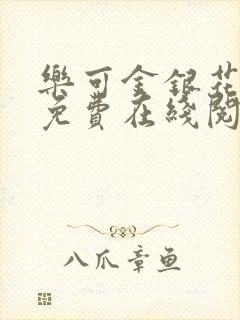 樂可金銀花
免費在綫閱
八爪章鱼